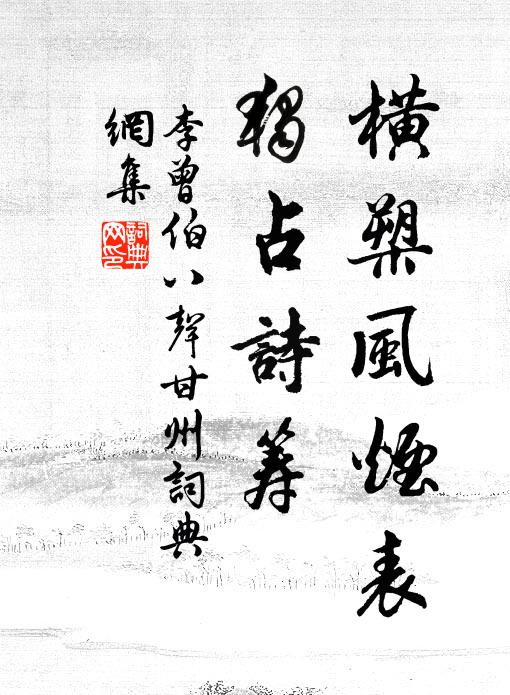 橫槊風煙表
獨占詩筹
李曾伯八聲甘州詞典
網集
詞典
网印